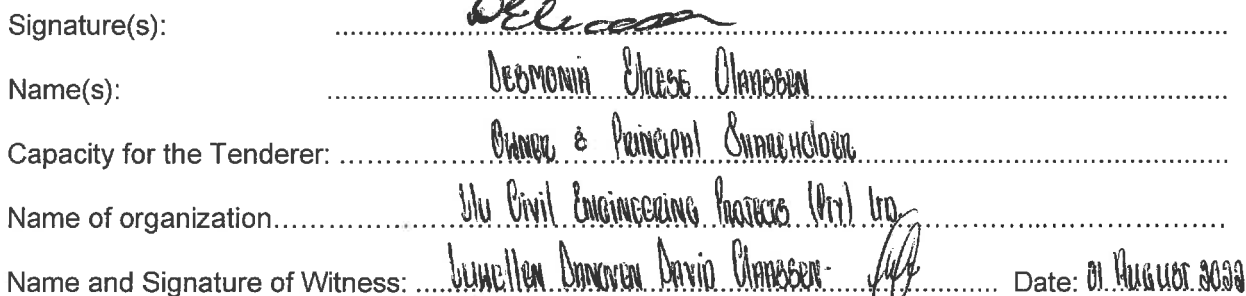 Signature(s):
Name(s): Desmonia Elrese Claassen
Capacity for the Tenderer: Owner & Principal Shareholder
Name of organization Civil Engineering Projects (Pty) Ltd
Name and Signature of Witness: Luwellen Donoven David Claassen Date: 01 August 2022